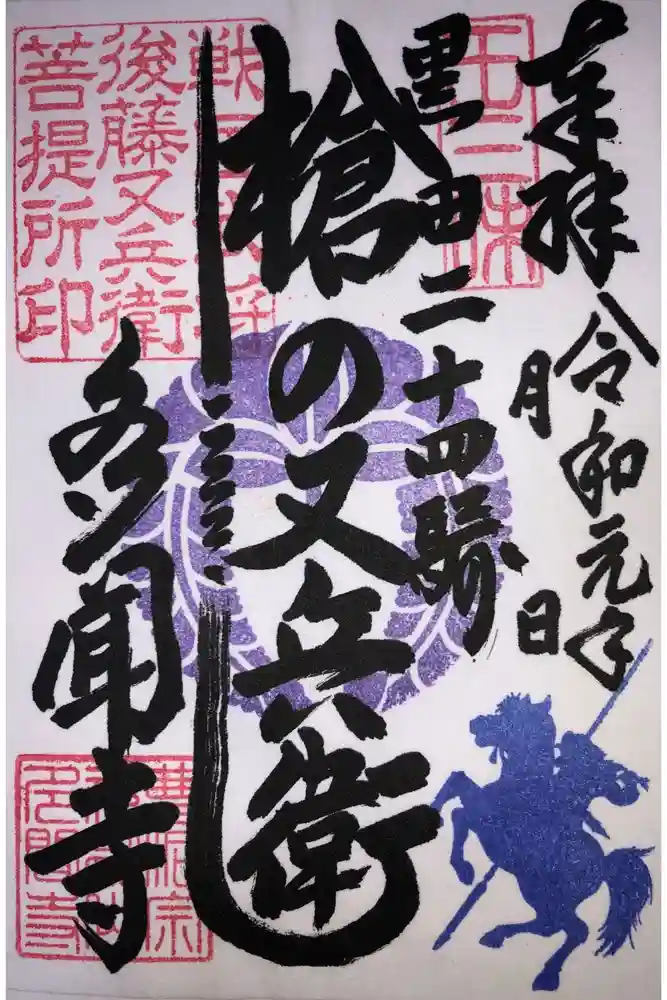 奉拝
令和元年
月
日
黒田二十四騎
槍の又兵衛
多聞寺
戦国武将
後藤又兵衛
菩提所印